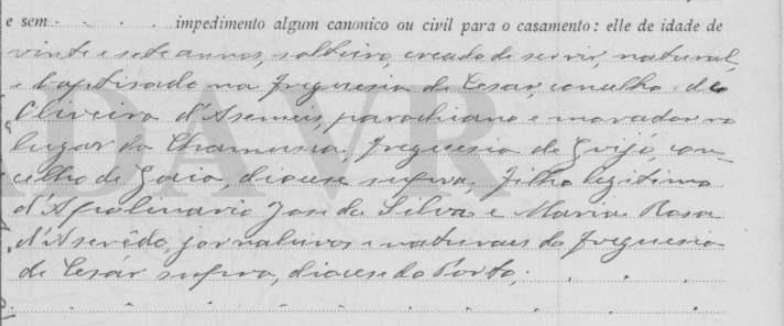 e sem - - - - impedimento algum canonico ou civil para o casamento: elle de idade de
vinte e sete annos, solteiro, creado de servir, natural,
e baptisado na freguesia de Cesar, concelho de
Oliveira d'Asemeis, parochiano e morador no
lugar da Chamusca, freguesia de Grijó, con-
celho de Gaia, diocese supra, filho legitimo
d'Apolinario José da Silva e Maria Rosa
d'Asevêdo, jornaleiros e naturaes da freguesia
de Cesár supra, diocese do Porto; . . . .
ADAVR